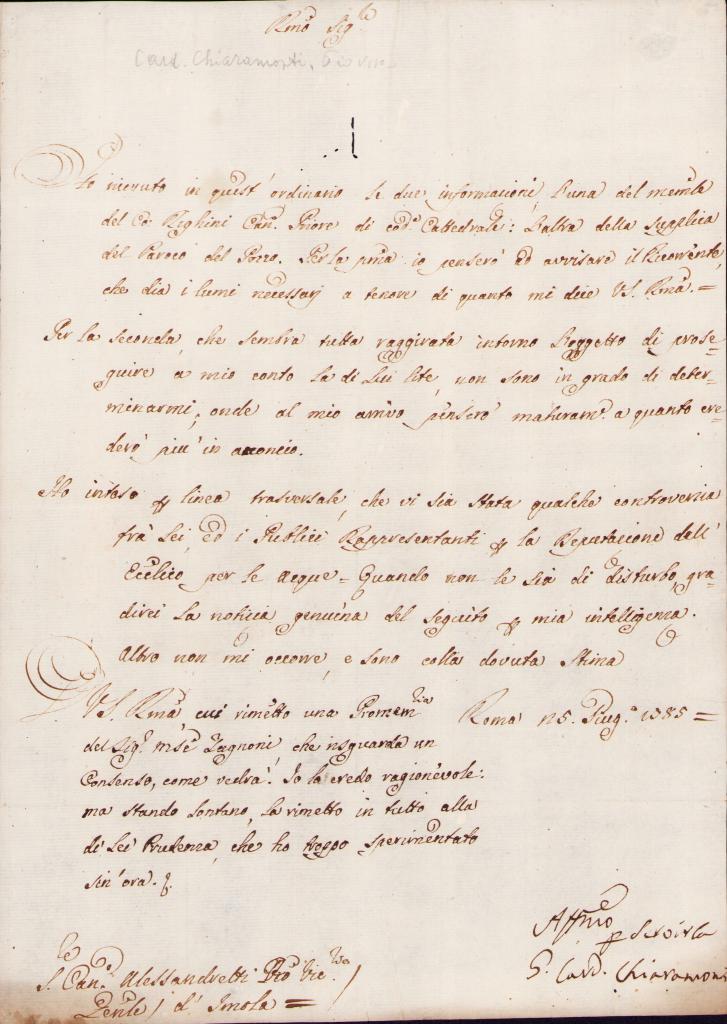 Rmo Sig.re
Card. Chiaramonti, Pio VII
Ho ricevuto in quest' ordinario le due informazioni, l'una del memle
del Co: Righini Can.co Priore di cod.a Cattedrale: l'altra della supplica
del Paroco del Pozzo. Per la pma io penserò ad avvisare il Ricorrente,
che dia i lumi necessarj a tenore di quanto mi dice VS. Rma. =
Per la seconda, che sembra tutta raggirata intorno l'oggetto di prose=
guire a mio conto la di lui lite, non sono in grado di deter=
minarmi, onde al mio arrivo penserò maturam.e a quanto cre=
derò più in acconcio.
Ho inteso p linea trasversale, che vi sia stata qualche controversia
frà Lei, ed i Publici Rappresentanti p la Reputazione dell'
Ecclico per le acque = Quando non le sia di disturbo, gra=
direi la notizia genuina del seguito p mia intelligenza.
Altro non mi occorre, e sono colla dovuta stima
VS. Rma, cui rimetto una Promem.ria
del Sig.r mse Zagnoni, che risguarda un
Consenso, come vedrà. Io la credo ragionevole:
ma stando lontano, la rimetto in tutto alla
di Lei Prudenza, che ho troppo sperimentato
sin' ora.
Roma 15. Giug.o 1785 =
Affmo p Servirla
G. Card. Chiaramonti
S. Can.co Alessandretti Pro Vic.rio
Genle / d' Imola =